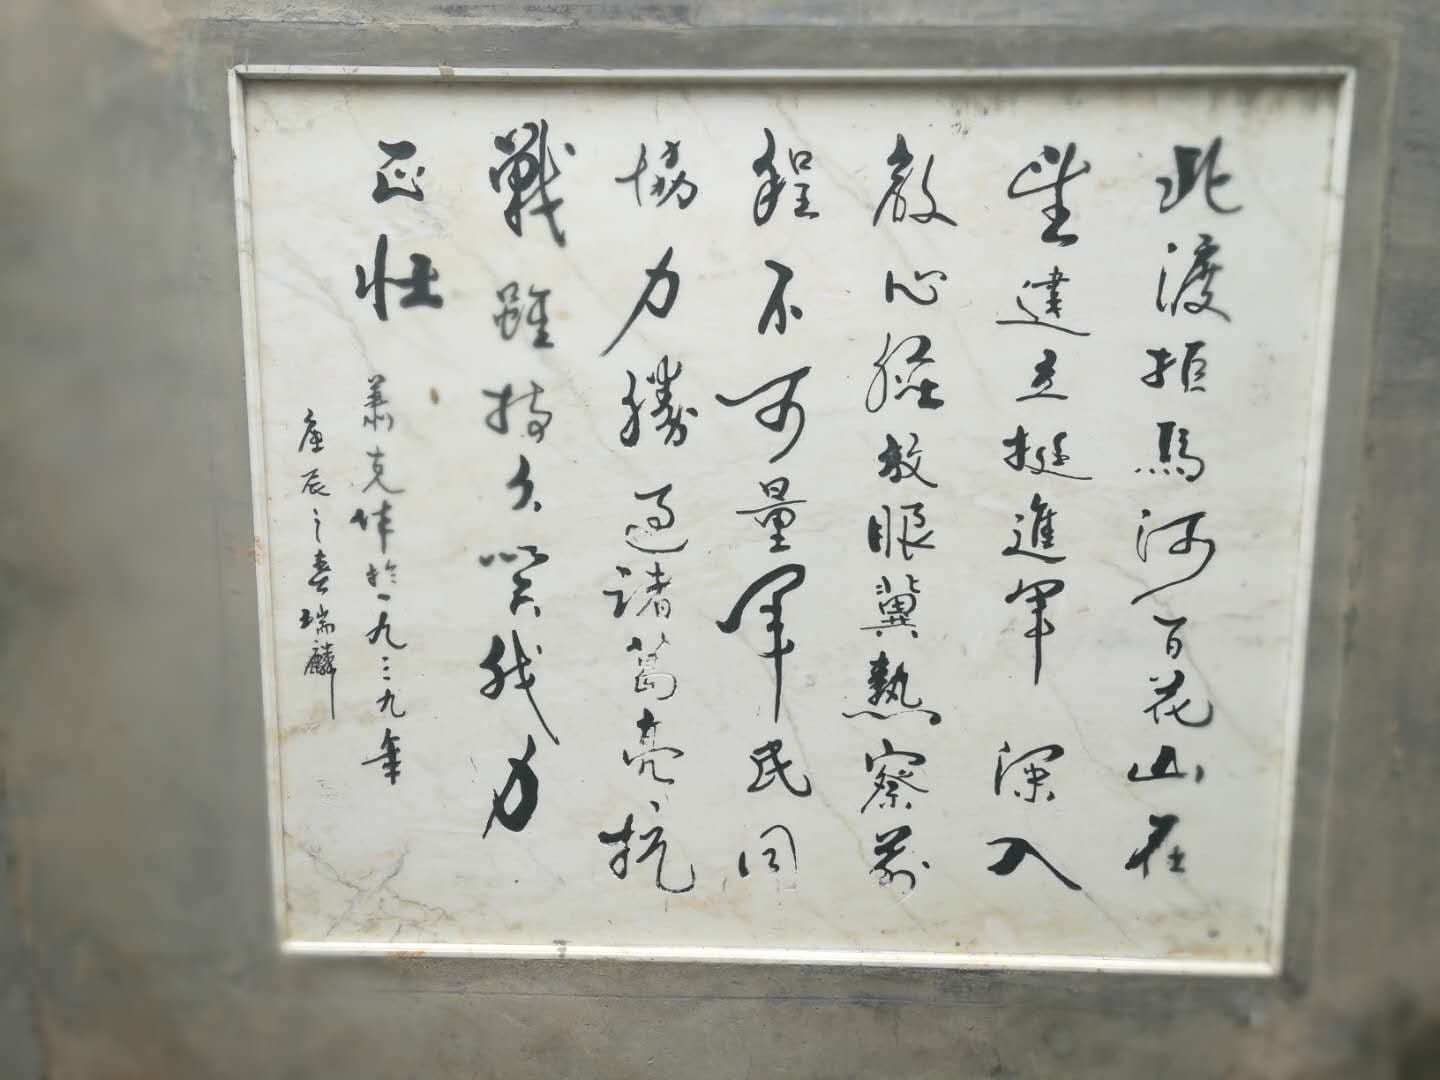 北渡拒馬河百花山在
望建立挺進軍深入
敵心臟放眼冀熱察前
程不可量軍民同
協力勝過諸葛亮抗
戰雖持久笑我力
正壯
萧克作於一九三九年
庚辰之春瑞麟